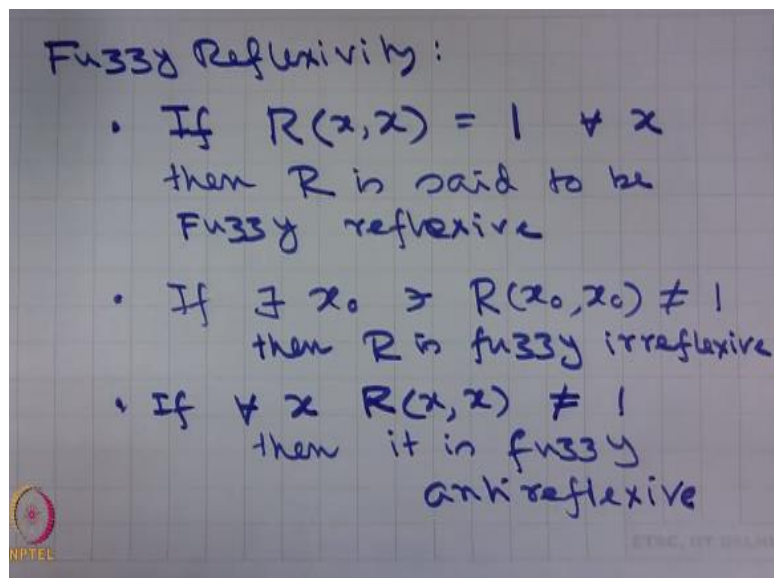 Fuzzy Reflexivity :
• If R(x,x) = 1 ∀ x
then R is said to be
Fuzzy reflexive
• If ∃ x₀ ∋ R(x₀,x₀) ≠ 1
then R is fuzzy irreflexive
• If ∀ x R(x,x) ≠ 1
then it is fuzzy
antireflexive
NPTEL
ETSC, IIT DELHI